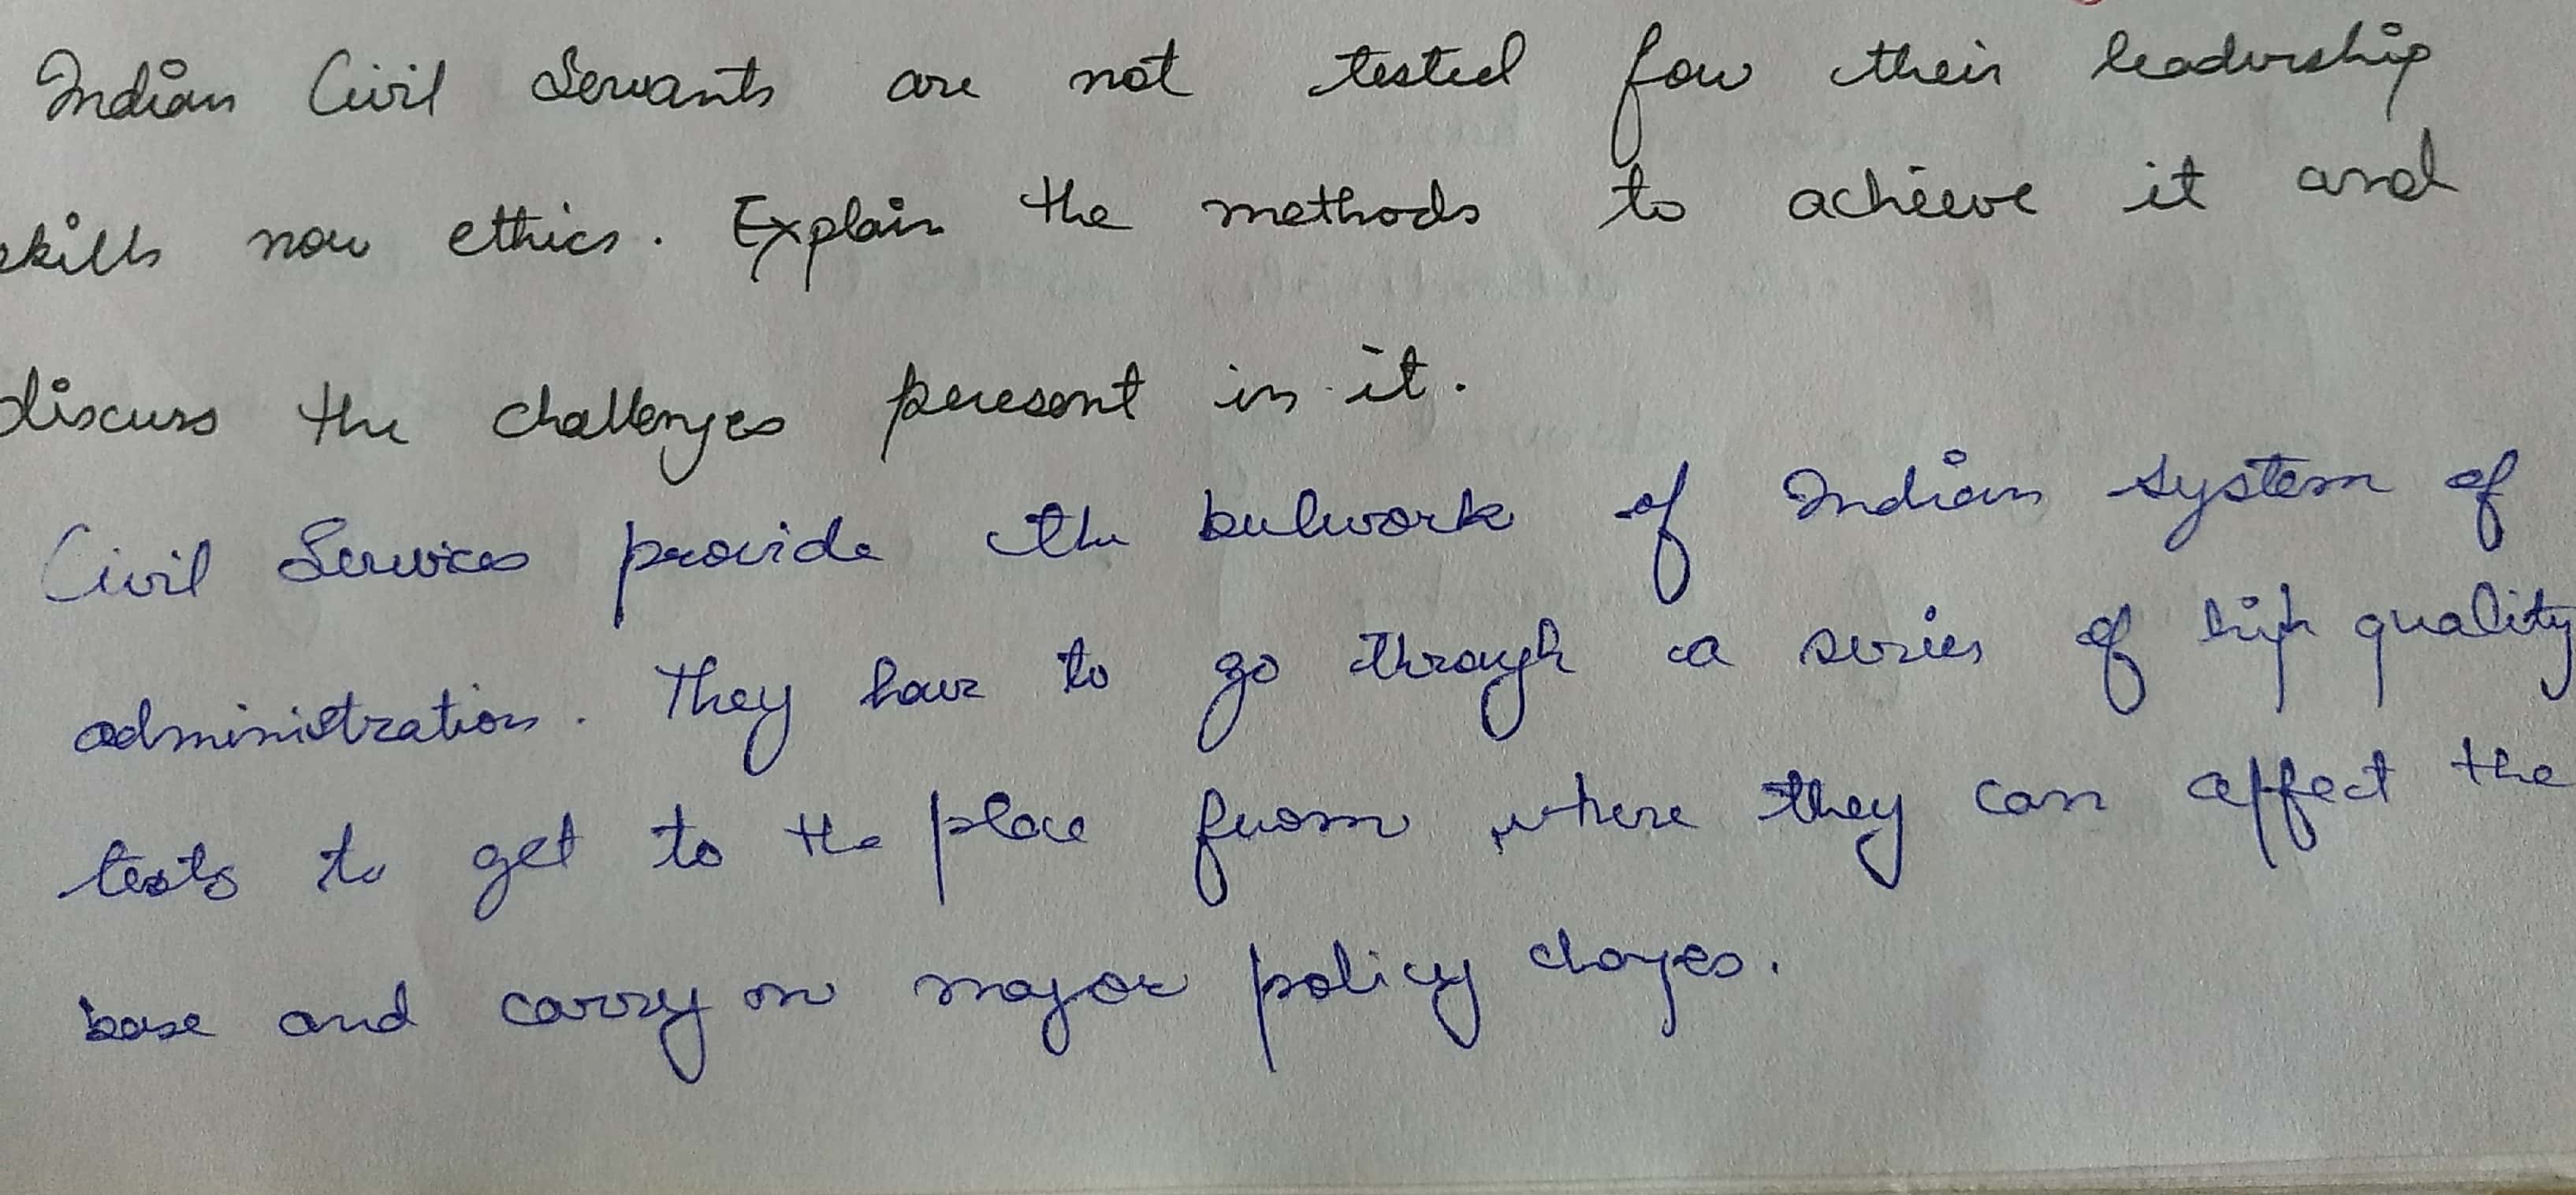 Indian Civil Servants are not tested for their leadership
skills nor ethics. Explain the methods to achieve it and
discuss the challenges present in it.
Civil Services provide the bulwork of Indian system of
administration. They have to go through a series of high quality
tests to get to the place from where they can affect the
base and carry on major policy changes.